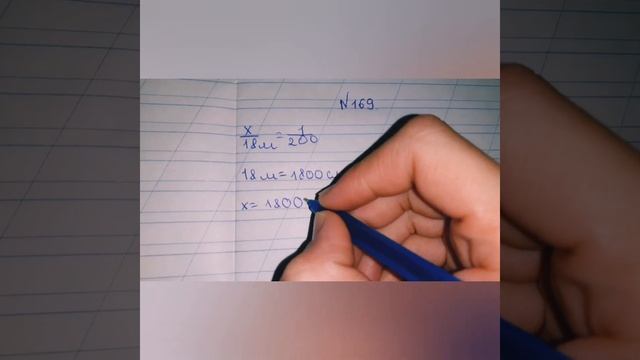 N169.
x/18м = 1/200
18м=1800с
x= 1800